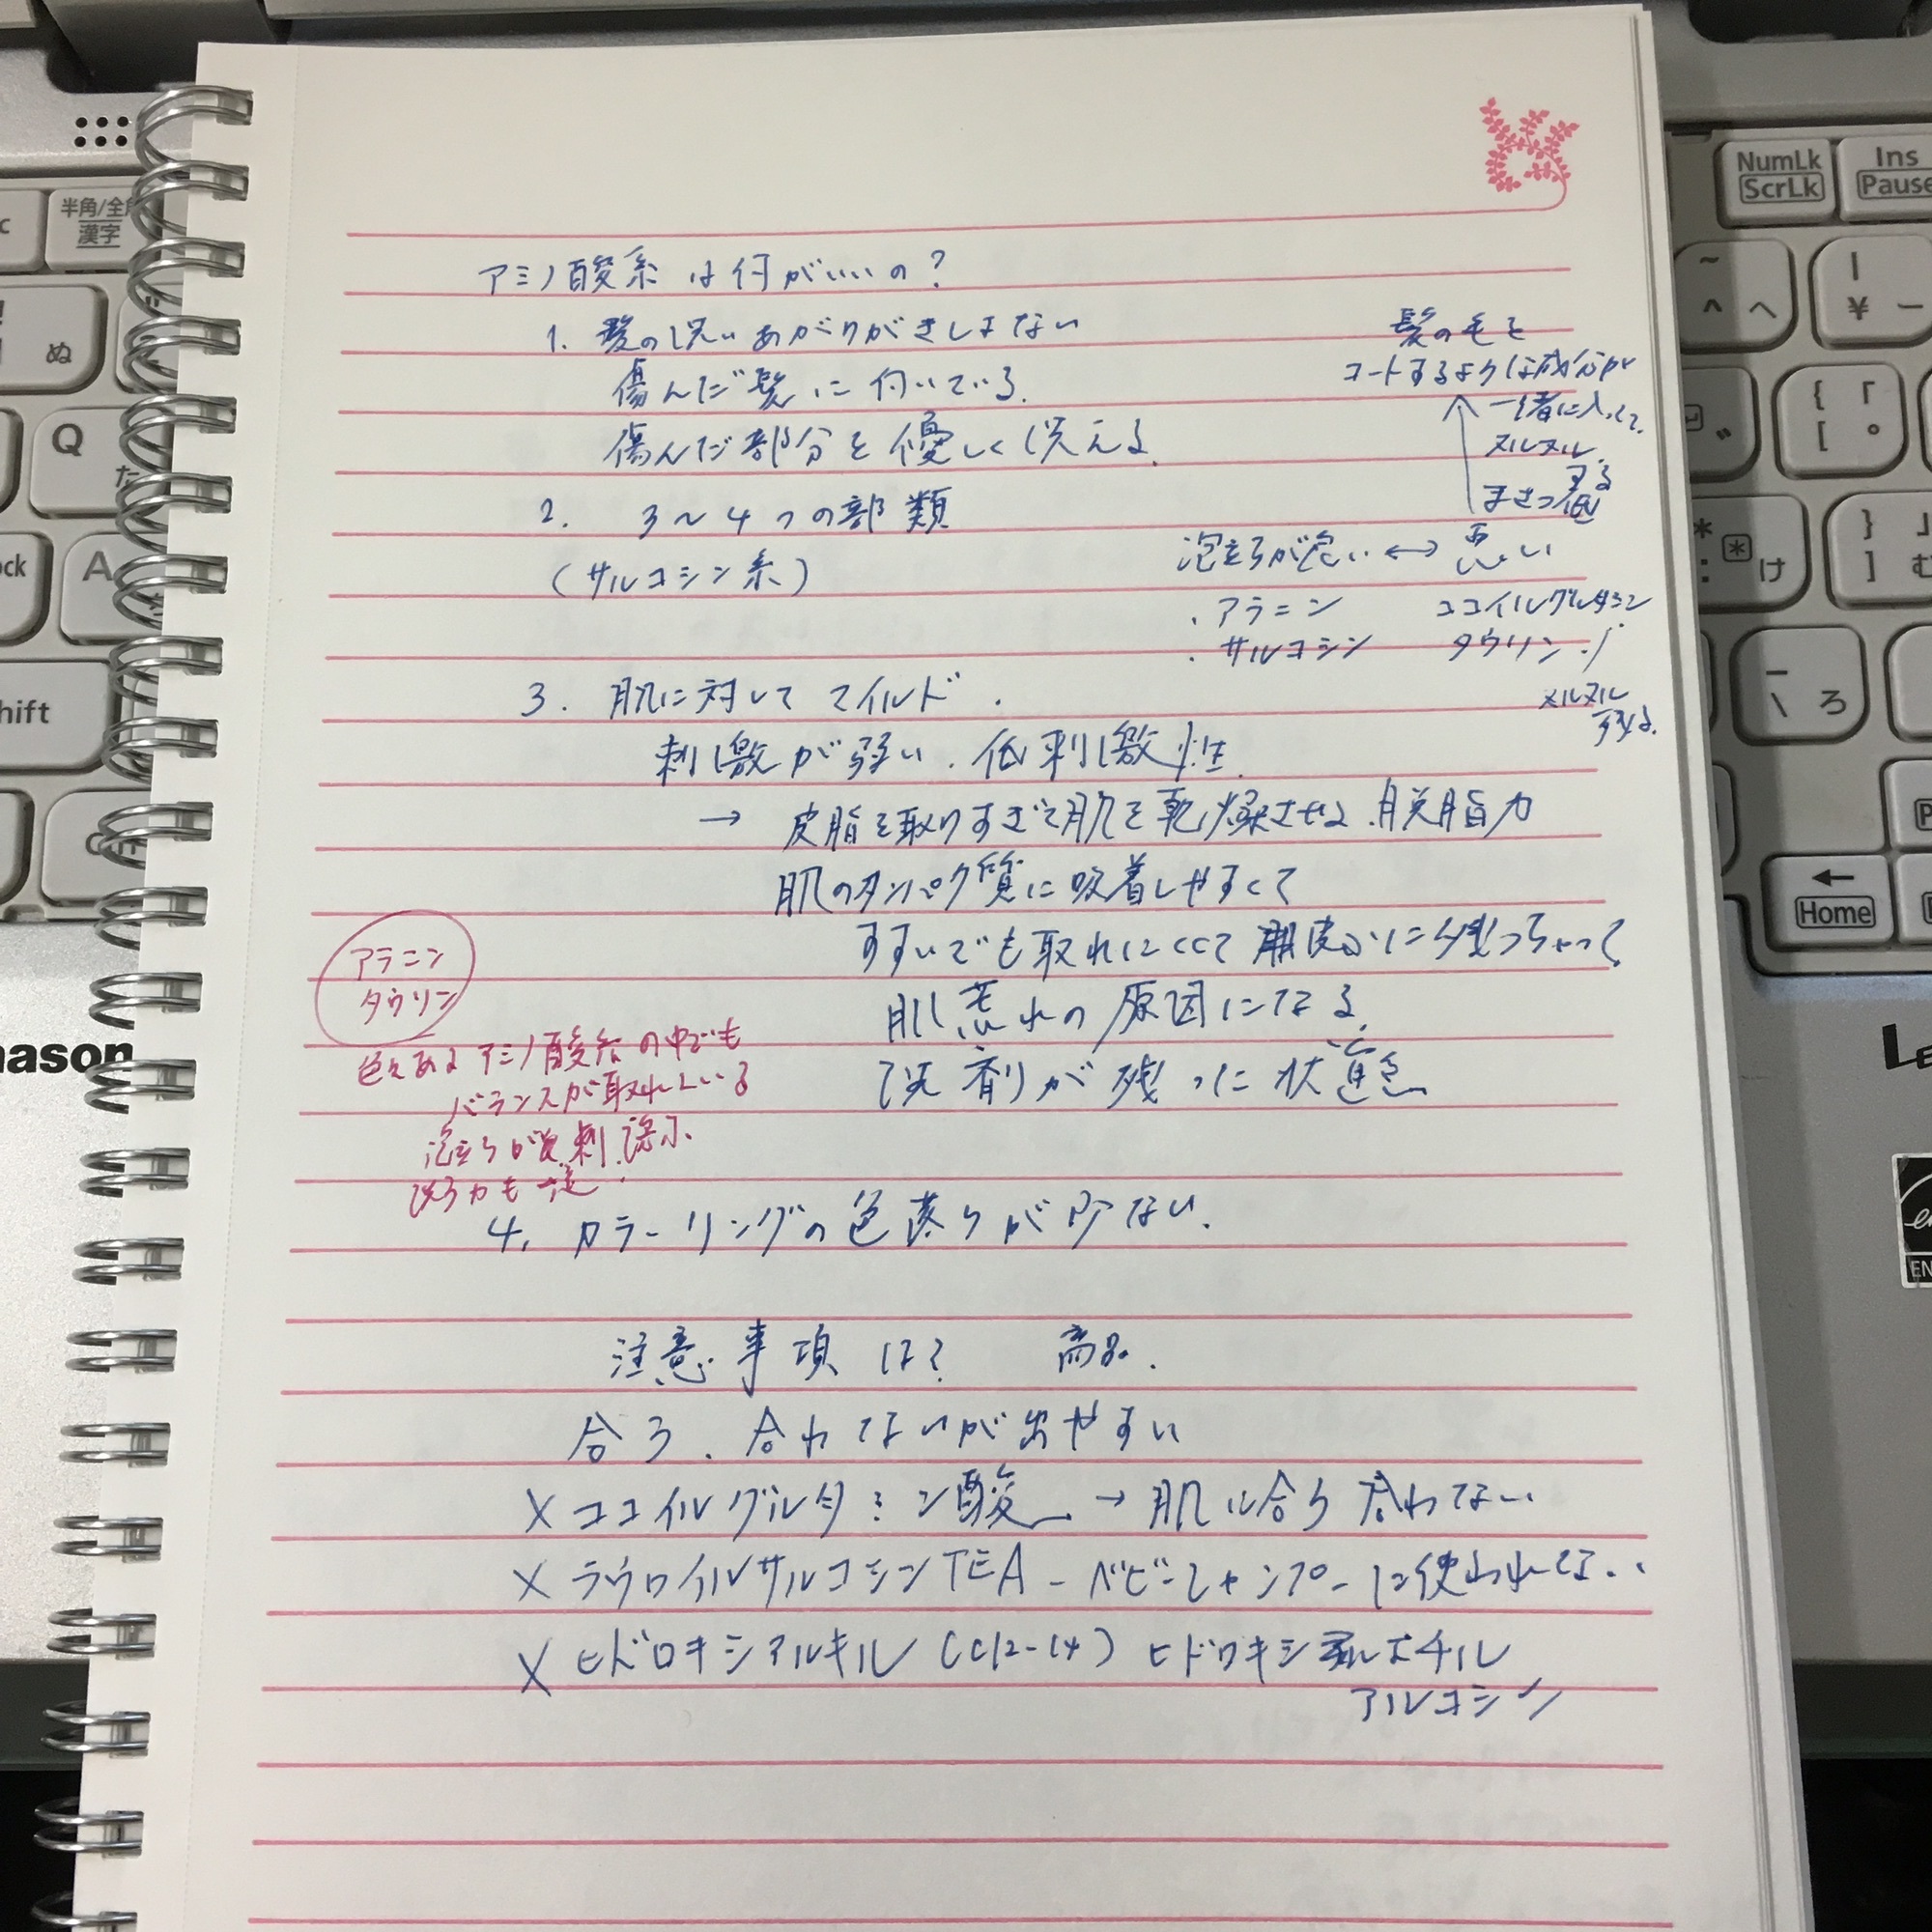 アミノ酸系は何がいいの?
1. 髪の洗いあがりがきしまない
傷んだ髪に向いている.
傷んだ部分を優しく洗える.
髪の毛を
コートするような成分が
一緒に入って.
ヌルヌル
する
まさつ低
2. 3〜4つの部類
(サルコシン系)
泡立ちが良い ↔ 悪い
・アラニン ココイルグルタミン
・サルコシン タウリン
ヌルヌル
残る.
3. 肌に対してマイルド.
刺激が弱い. 低刺激性.
→ 皮脂を取りすぎて肌を乾燥させる. 脱脂力
肌のタンパク質に吸着しやすくて
すすいでも取れにくくて 皮ふに残っちゃって
肌荒れの原因になる.
洗剤が残った状態
アラニン
タウリン
色々あるアミノ酸系の中でも
バランスが取れている
泡立ちが良
洗う力も
4. カラーリングの色落ちが少ない.
注意事項は? 商品.
合う. 合わないが出やすい
× ココイルグルタミン酸 → 肌に合う合わない
× ラウロイルサルコシンTEA - ベビーシャンプーに使われて
× ヒドロキシアルキル (C12-14) ヒドロキシエチル
サルコシン
NumLk
ScrLk
Ins
Pause
半角/全角
漢字
ぬ
Q
た
A
hift
Home
け
ろ
^
へ
¥